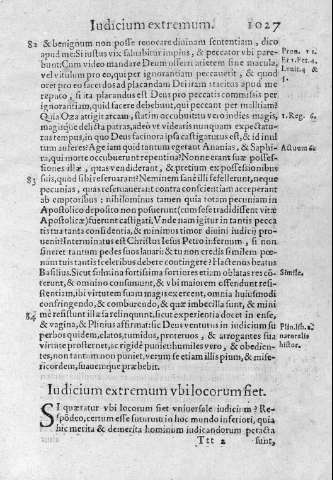 Iudicium extremum. 1027
82 & benignum non posse reuocare diuinam sententiam, dico
apud me: Si iustus vix saluabitur impius, & peccator vbi pare-
bunt: Cum video mandare Deum offerri arietem sine macula,
vel vitulum pro eo, qui per ignorantiam peccauerit, & quod
oret pro eo sacerdos ad placandam Dei iram tacitus apud me
reputo, si ita placandus est Deus pro peccatis commissis per
ignorantiam, quid facere debebunt, qui peccant per malitiam?
Quia Oza artigit arcam, statim occubuit tu vero indies magis,
magisque delicta patras, adeo vt videaris nunquam expectatu-
ras tempus, in quo Deus facinora ipsa castigaturus est, & id mul-
tum auferes? Age iam quid tantum egetant Ananias, & Saphi-
ra, qui morte occubuerunt repentina? Nonne erant suæ posses-
siones illæ, quas vendiderant, & pretium ex possessionibus
suis, quod sibi reseruarant? Neminem sane illi fefellerunt, neque
83 pecunias, quas reseruauerant contra conscientiam acceperant
ab emptoribus: nihilominus tamen quia totam pecuniam in
Apostolico deposito non posuerunt (cum se se tradidissent vitæ
Apostolicæ) fuerunt castigati. Vnde nam igitur in tantis pecca
tis tua tanta considentia, & minimus timor diuini iudicij pro-
uenit? Interminatus est Christus Iesus Petro infernum, si non
sineret tantum pedes suos lauari: & tu non credis similem pœ-
nam tuis tantis sceleribus debere contingere? Hactenus beatus
Basilius. Sicut fulmina fortissima fortiores etiam oblatas res cõ-
ferunt, & omnino consumunt, & vbi maiorem offendunt resi-
stentiam, ibi virtutem suam magis exserunt, omnia huiusmodi
confringendo, & comburendo, & quæ imbecilla sunt, & mini-
84 me resistunt illæsa relinquunt. sicut experientia docet in ense,
& vagina, & Plinius affirmat: sic Deus venturus in iudicium su
perbos quidem, elatos, tumidos, proteruos, & arrogantes sua
virtute prosternet, ac rigidè puniet: humiles vero, & obedien-
tes, non tantum non puniet. verum se etiam illis pium, & mise-
ricordem, suauemque præbebit.
Prou. 11.
Et 1. Pet. 4
Leuit. 4 &
5.
1. Reg. 6.
Actuum 5.
Simile.
Plin. lib. 2
naturalis
histor.
Iudicium extremum vbi locorum fiet.
SI quæratur vbi locorum fiet vniuersale iudicium? Re-
spõdeo, certum esse futurum in hoc mundo inferiori, quia
hic merita & demerita hominum iudicandorum peracta
Ttt 2 sunt,